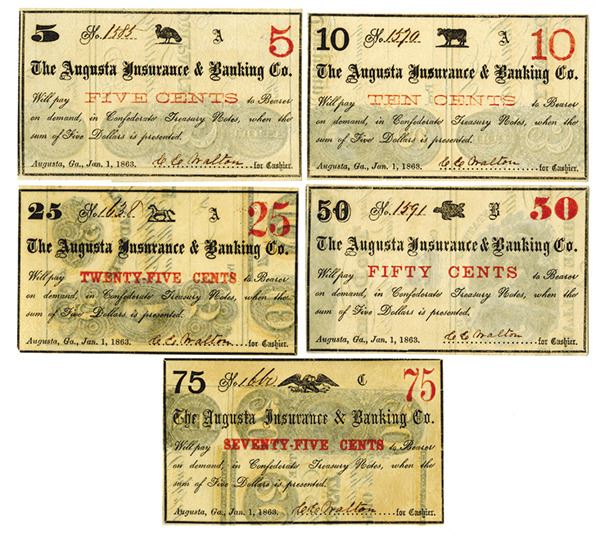 5 No. 1585 A 5
The Augusta Insurance & Banking Co.
Will pay FIVE CENTS to Bearer
on demand, in Confederate Treasury Notes, when the
sum of Five Dollars is presented.
Augusta, Ga., Jan. 1, 1863. C C Walton for Cashier.
10 No. 1570 A 10
The Augusta Insurance & Banking Co.
Will pay TEN CENTS to Bearer
on demand, in Confederate Treasury Notes, when the
sum of Five Dollars is presented.
Augusta, Ga., Jan. 1, 1863. C C Walton for Cashier.
25 No. 1638 A 25
The Augusta Insurance & Banking Co.
Will pay TWENTY-FIVE CENTS to Bearer
on demand, in Confederate Treasury Notes, when the
sum of Five Dollars is presented.
Augusta, Ga., Jan. 1, 1863. C C Walton for Cashier.
50 No. 1591 B 50
The Augusta Insurance & Banking Co.
Will pay FIFTY CENTS to Bearer
on demand, in Confederate Treasury Notes, when the
sum of Five Dollars is presented.
Augusta, Ga., Jan. 1, 1863. C C Walton for Cashier.
75 No. C 75
The Augusta Insurance & Banking Co.
Will pay SEVENTY-FIVE CENTS to Bearer
on demand, in Confederate Treasury Notes, when the
sum of Five Dollars is presented.
Augusta, Ga., Jan. 1, 1863. C C Walton for Cashier.